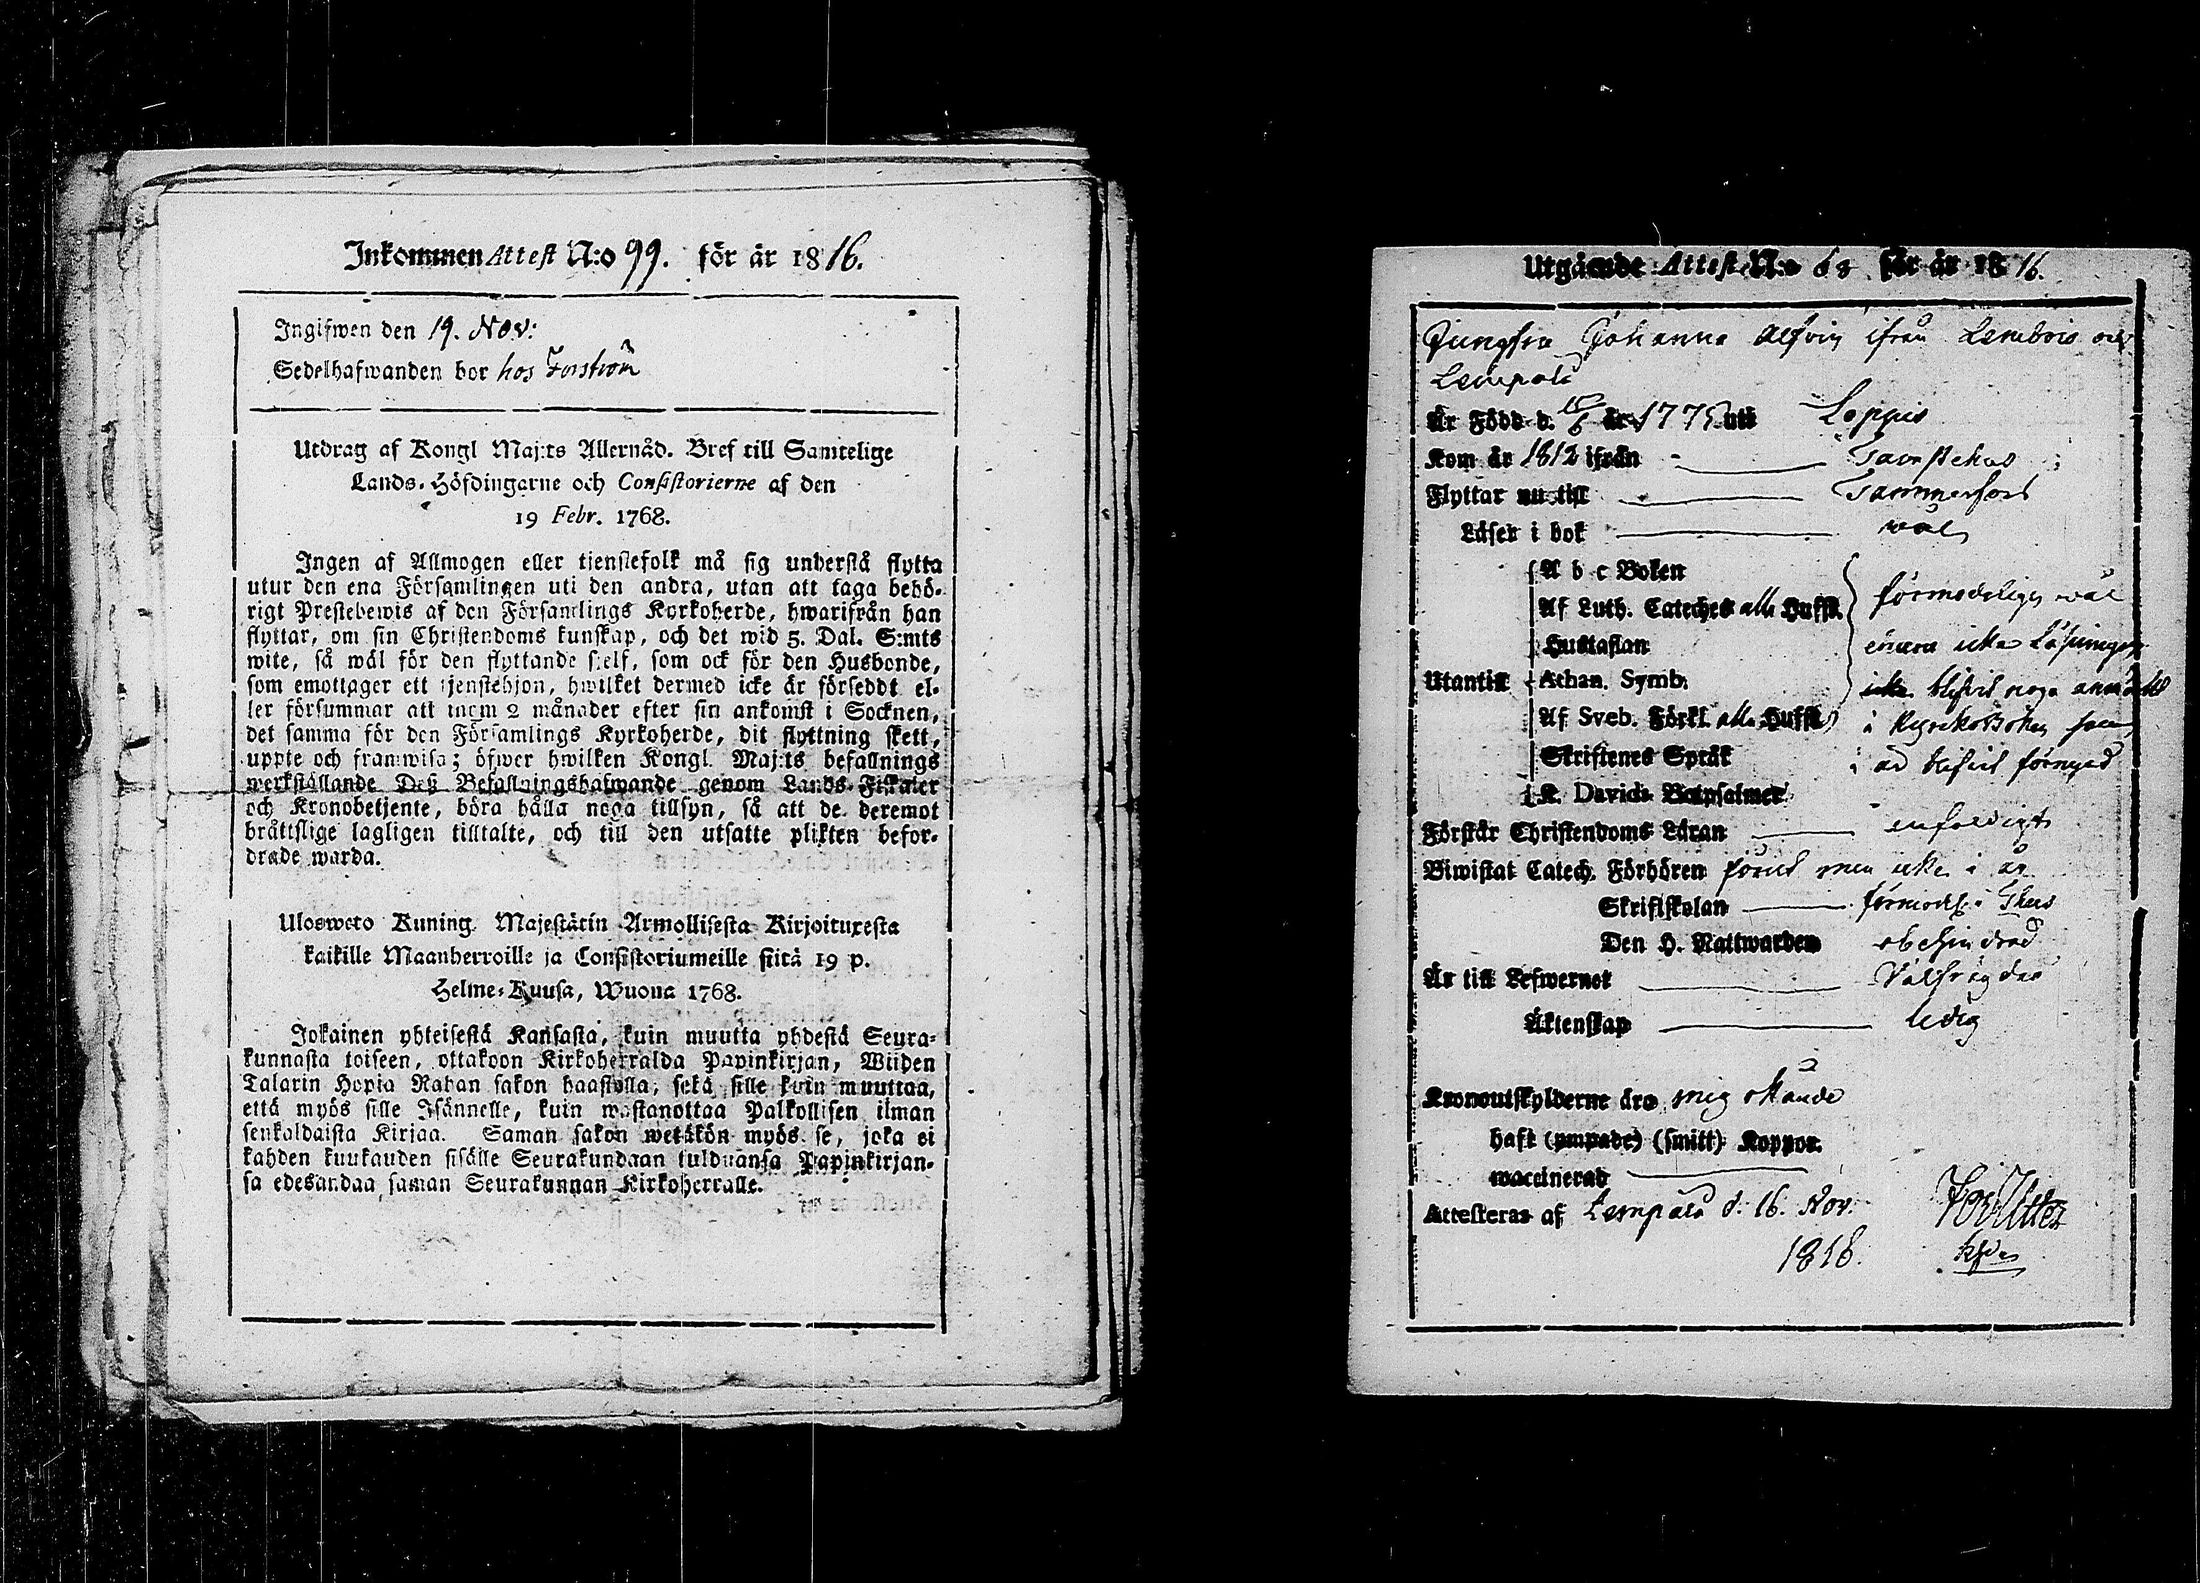 Inkommen Attest N:o 99. för år 1816.
Ingifwen den 19. Nov:
Sedelhafwanden bor hos Forström
Utdrag af Kongl Maj:ts Allernåd. Bref till Samtelige
Lands-Höfdingarne och Consistorierne af den
19 Febr. 1768.
Ingen af Allmogen eller tjenstefolk må sig understå flytta
utur den ena Församlingen uti den andra, utan att taga behö-
rigt Prestebewis af den Församlings Kyrkoherde, hwarifrån han
flyttar, om sin Christendoms kunskap, och det wid 5. Dal. S:mts
wite, så wäl för den flyttande sjelf, som ock för den Husbonde,
som emottager ett tjenstehjon, hwilket dermed icke är försedt el-
ler försummar att inom 2 månader efter sin ankomst i Socknen,
det samma för den Församlings Kyrkoherde, dit flyttning skett,
uppte och framwisa; öfwer hwilken Kongl. Maj:ts befallnings
werkställande Deß Befallningshafwande genom Lands-Fiskaler
och Kronobetjente, böra hålla noga tillsyn, så att de deremot
bråttslige lagligen tilltalte, och till den utsatte plikten befor-
drade warda.
Ulosweto Kuning. Majestätin Armollisesta Kirjoituxesta
kaikille Maanherroille ja Consistoriumeille siitä 19 p.
Helme-Kuusa, Wuona 1768.
Jokainen yhteisestä Kansasta, kuin muutta yhdestä Seura-
kunnasta toiseen, ottakoon Kirkoherralda Papinkirjan, Wiiden
Talarin Hopia Rahan sakon haastolla, sekä sille kuin muuttaa,
että myös sille Isännelle, kuin wastanottaa Palkollisen ilman
senkaldaista Kirjaa. Saman sakon wetäkön myös se, joka ei
kahden kuukauden sisälle Seurakundaan tulduansa Papinkirjan-
sa edesandaa saman Seurakunnan Kirkoherralle.
Utgående Attest N:o 68 för år 1816.
Jungfru Johanna ifrån Lembois och
Lempälä
Är Född d. år 1775 uti Loppis
Kom år 1812 ifrån Tavastehus
Flyttar nu till Tammerfors
Läser i bok wäl
A b c Boken
Af Luth. Cateches alla Hufst. förmodeligen wäl
Hustaflan emedan icke Läsningen
Utantill Athan. Symb. blifvit noga
Af Sveb. Förkl. alla Hufst. i KyrkoBoken som
Skriftenes Språk i år blifvit förnyad
K. Davids Botpsalmer
Förstår Christendoms Läran enfaldigt
Biwistat Catech. Förhören förut men icke i år
Skriftskolan
Den H. Nattwarden obehindrad
Är till Lefwernet Välfrägdad
Äktenskap ledig
Kronoutskylderne äro mig okände
haft (ympade) (smitt) Koppor.
waccinerad
Attesteras af Lempälä d. 16. Nov.
1816.